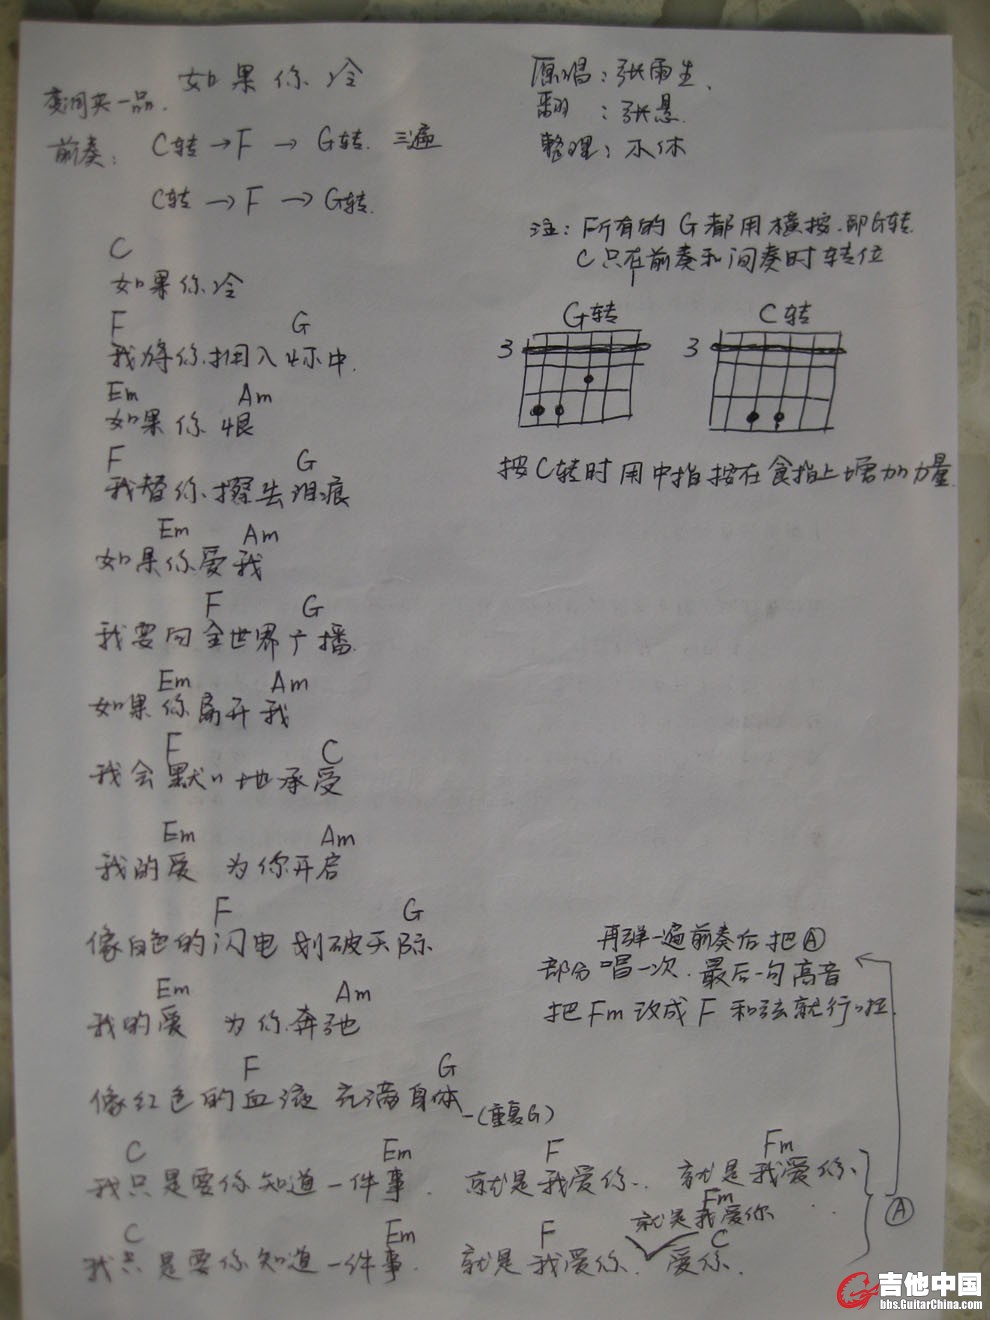 如果你冷
变调夹一品.
前奏: C转→F → G转. 三遍
C转→F →G转.
原唱:张雨生.
翻 :张悬.
整理:木休
注: F所有的G都用横按.即G转
C只在前奏和间奏时转位
G转
3
C转
3
按C转时用中指按在食指上增加力量.
C
如果你冷
F G
我将你拥入怀中.
Em Am
如果你恨
F G
我替你擦去泪痕
Em Am
如果你爱我
F G
我要向全世界广播.
Em Am
如果你离开我
F C
我会默〃地承受
Em Am
我的爱 为你开启
F G
像白色的闪电 划破天际
Em Am
我的爱 为你奔驰
F G
像红色的血液 充满身体
-(重复G)
再弹一遍前奏后把Ⓐ
部分唱一次.最后一句高音
把Fm改成F和弦就行啦.
C Em F Fm
我只是要你知道一件事. 就是我爱你.. 就是我爱你、
Ⓐ
Fm
就是我爱你
C Em F C
我只是要你知道一件事. 就是我爱你. 爱你.
吉他中国
bbs.GuitarChina.com